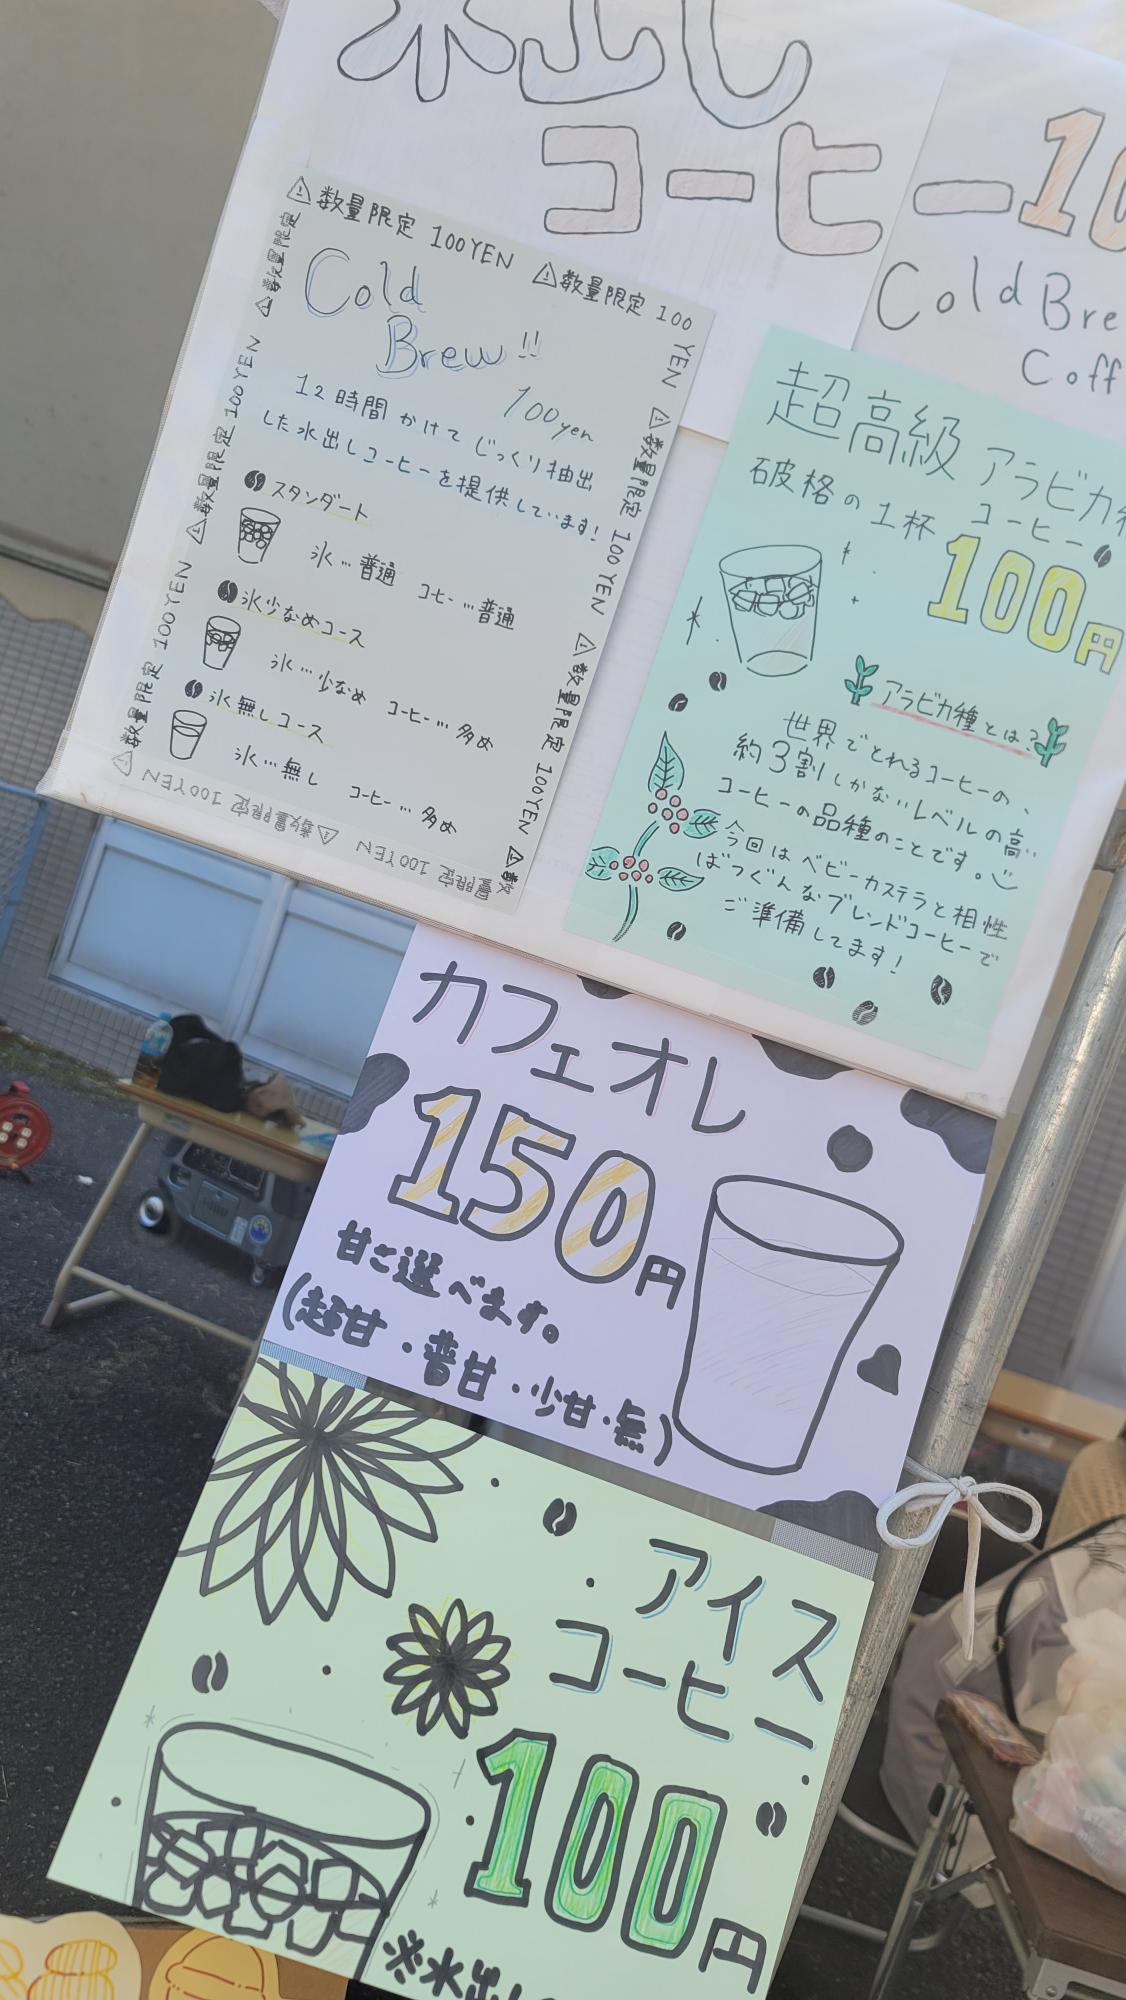 水出し
コーヒー
Cold
⚠数量限定 100YEN ⚠数量限定 100YEN
Cold
Brew!!
100yen
12時間かけてじっくり抽出
した水出しコーヒーを提供しています!
スタンダート
氷…普通 コーヒー…普通
氷少なめコース
氷…少なめ コーヒー…多め
氷無しコース
氷…無し コーヒー…多め
⚠数量限定 100YEN ⚠数量限定 100YEN
超高級 アラビカ種
コーヒー
破格の1杯
100円
アラビカ種とは?
世界でとれるコーヒーの、
約3割しかないレベルの高い
コーヒーの品種のことです。
今回はベビーカステラと相性
ばつぐんなブレンドコーヒーで
ご準備してます!
カフェオレ
150円
甘さ選べます。
(超甘・普甘・少甘・無)
アイス
コーヒー
100円
※水出し